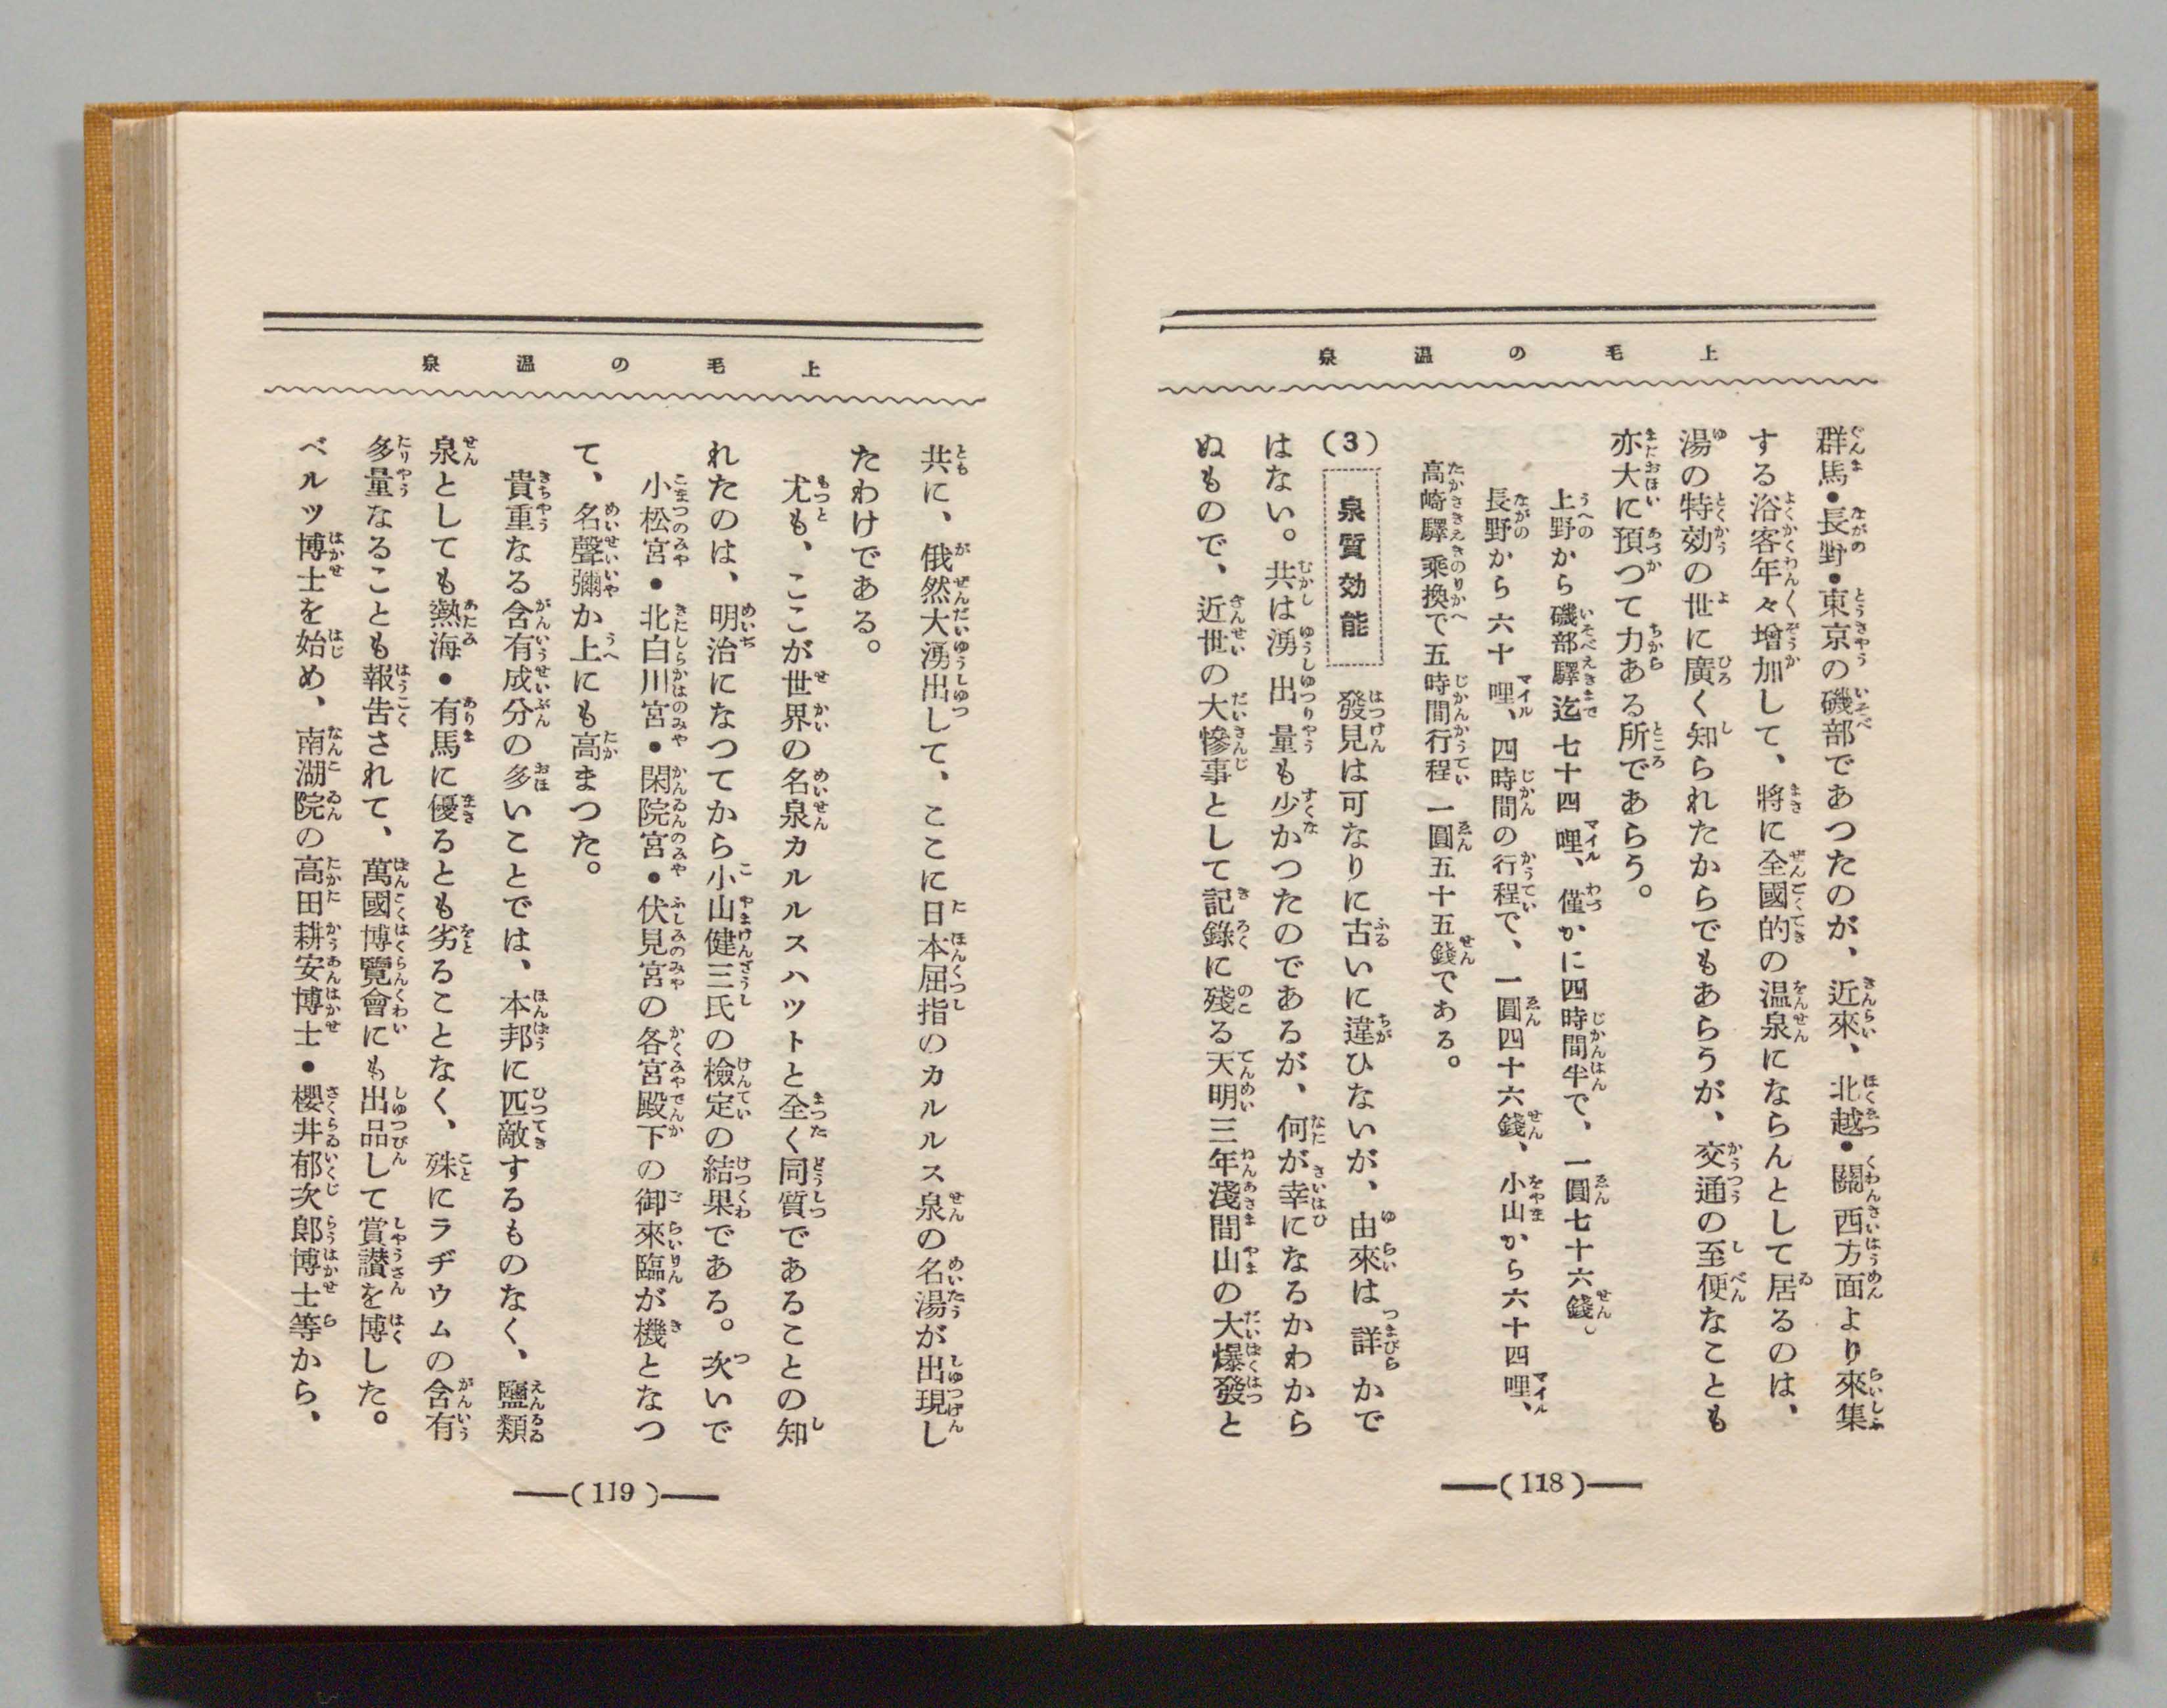 上毛の温泉
群馬・長野・東京の磯部であつたのが、近來、北越・關西方面より來集
する浴客年々增加して、將に全國的の温泉にならんとして居るのは、
湯の特効の世に廣く知られたからでもあらうが、交通の至便なことも
亦大に預つて力ある所であらう。
上野から磯部驛迄七十四哩、僅かに四時間半で、一圓七十六錢。
長野から六十哩、四時間の行程で、一圓四十六錢、小山から六十四哩、
高崎驛乘換で五時間行程一圓五十五錢である。
(3) 泉質効能 發見は可なりに古いに違ひないが、由來は詳かで
はない。共は湧出量も少かつたのであるが、何が幸になるかわから
ぬもので、近世の大慘事として記錄に殘る天明三年淺間山の大爆發と
(118)
上毛の温泉
共に、俄然大湧出して、ここに日本屈指のカルルス泉の名湯が出現し
たわけである。
尤も、ここが世界の名泉カルルスハツトと全く同質であることの知
れたのは、明治になつてから小山健三氏の檢定の結果である。次いで
小松宮・北白川宮・閑院宮・伏見宮の各宮殿下の御來臨が機となつ
て、名聲彌か上にも高まつた。
貴重なる含有成分の多いことでは、本邦に匹敵するものなく、鹽類
泉としても熱海・有馬に優るとも劣ることなく、殊にラヂウムの含有
多量なることも報告されて、萬國博覽會にも出品して賞讃を博した。
ベルツ博士を始め、南湖院の高田耕安博士・櫻井郁次郎博士等から、
(119)